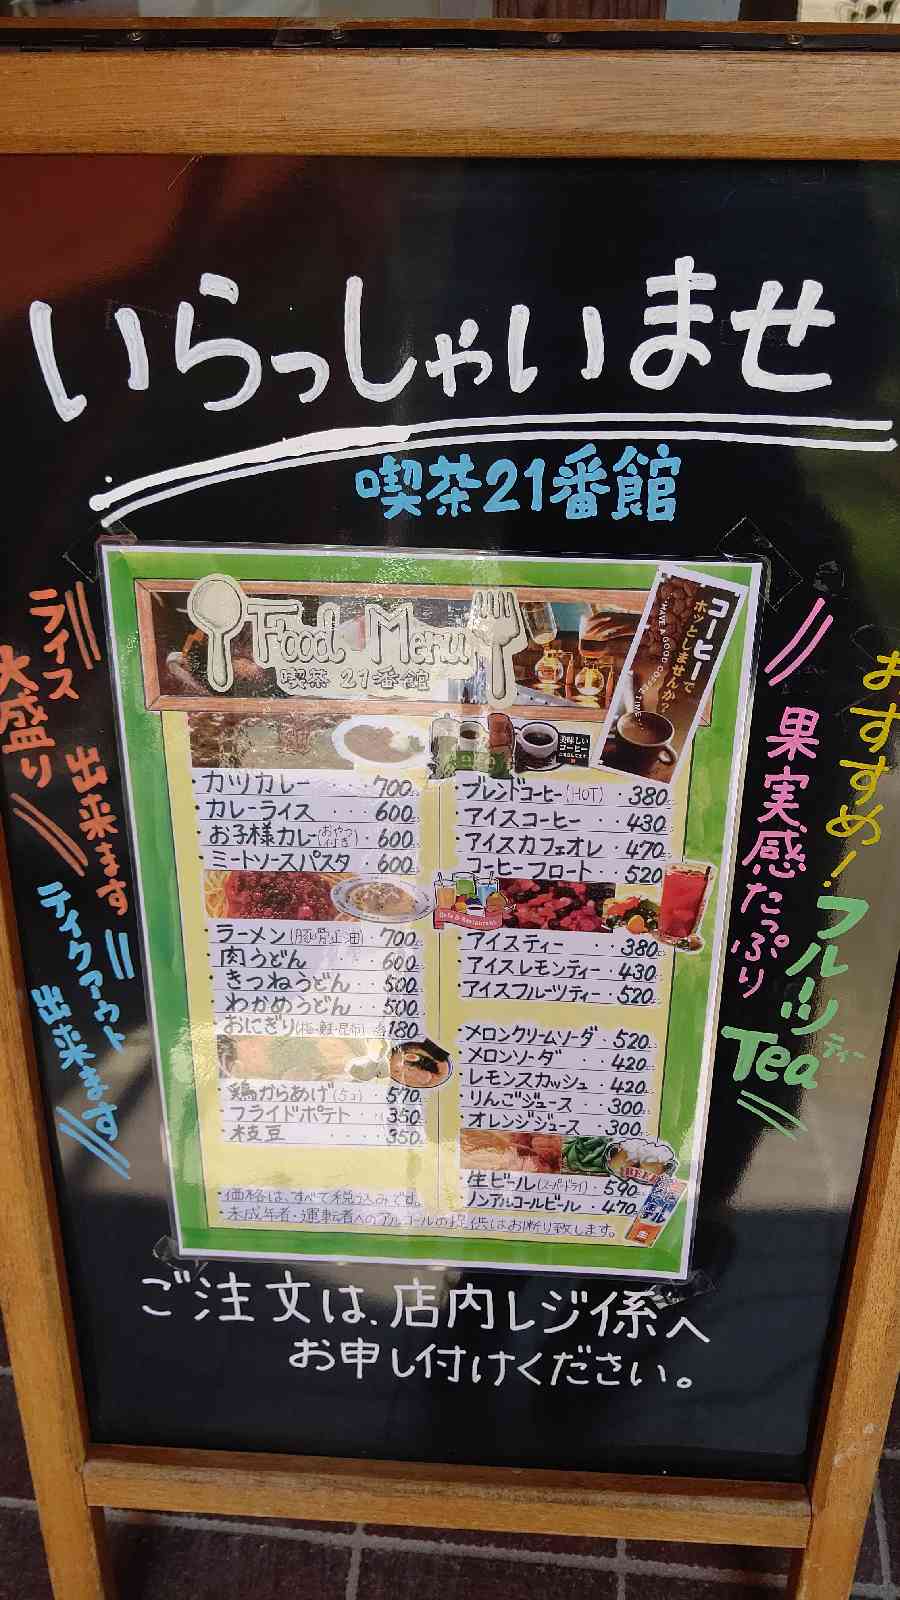 いらっしゃいませ
喫茶21番館
ライス
大盛り
出来ます
テイクアウト
出来ます
おすすめ!
フルーツ
Tea
ティー
果実感たっぷり
Food Menu
喫茶 21番館
コーヒーで
ホッとしませんか?
HAVE A GOOD COFFEE TIME
美味しい
コーヒー
・カツカレー ・・・ 700
・カレーライス ・・ 600
・お子様カレー(おやつ付き) 600
・ミートソースパスタ ・ 600
・ラーメン(豚骨正油)・ 700
・肉うどん ・・・ 600
・きつねうどん ・・ 500
・わかめうどん ・・ 500
・おにぎり(梅・鮭・昆布) 各180
・鶏からあげ(5コ) ・ 570
・フライドポテト ・ 350
・枝豆 ・・・・ 350
・ブレンドコーヒー(HOT) ・ 380
・アイスコーヒー ・ 430
・アイスカフェオレ ・ 470
コーヒーフロート ・・ 520
Cafe & Restaurant
・アイスティー ・・ 380
・アイスレモンティー ・ 430
・アイスフルーツティー ・ 520
・メロンクリームソーダ ・ 520
・メロンソーダ ・ 420
・レモンスカッシュ ・ 420
・りんごジュース ・ 300
・オレンジジュース ・ 300
BEER
・生ビール(スーパードライ) ・ 590
・ノンアルコールビール ・ 470
・価格は、すべて税込みです。
・未成年者・運転者へのアルコールの提供はお断り致します。
ご注文は、店内レジ係へ
お申し付けください。